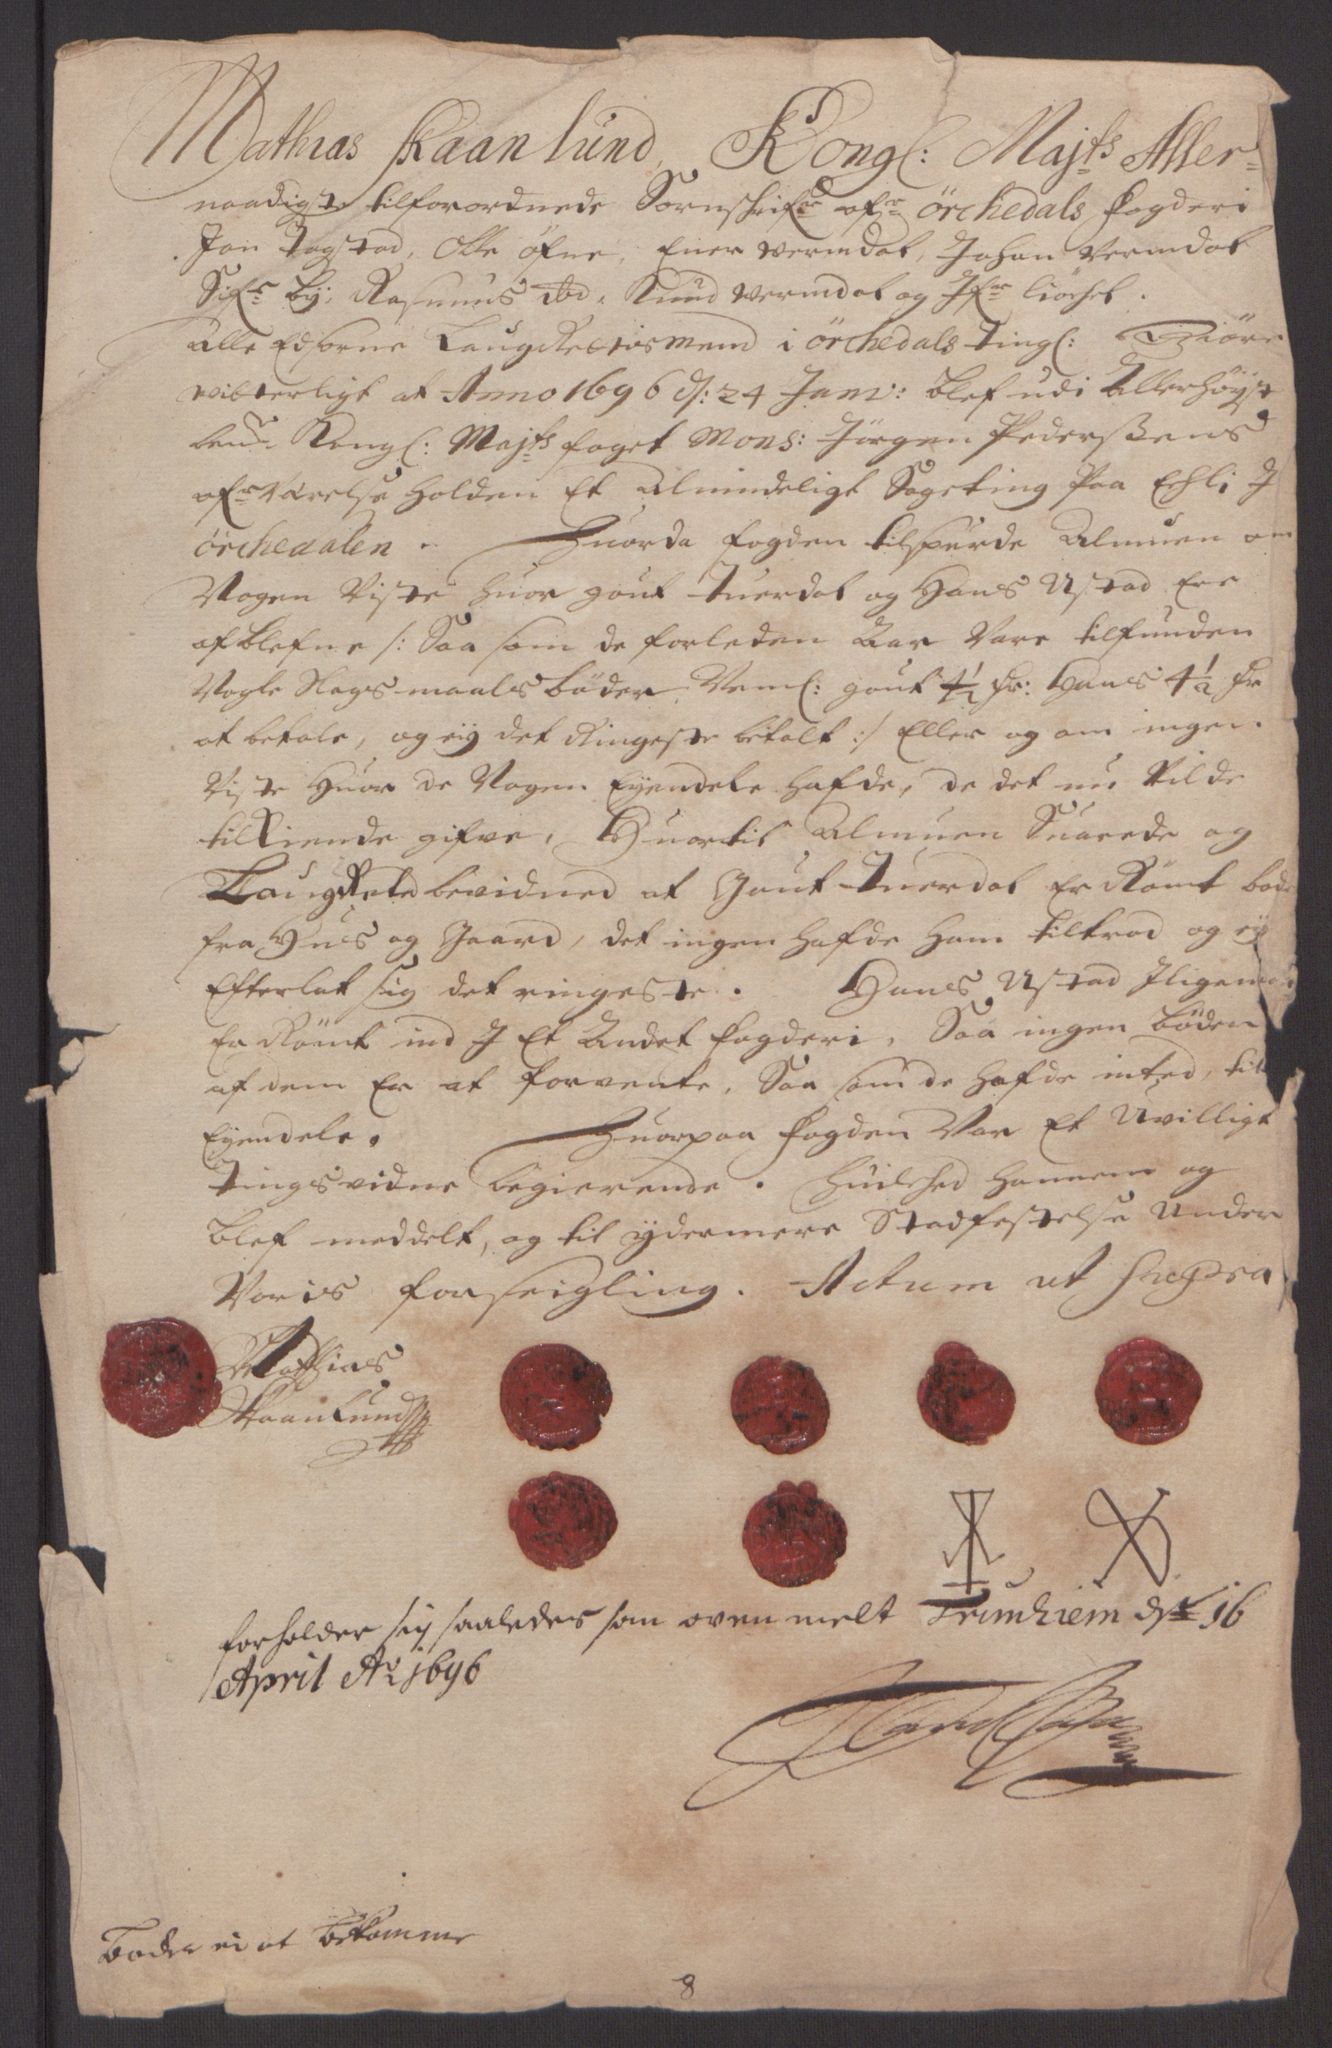 Mathias Skaanlund, Kongl: Majts Aller-
naadigste tilforordnede Sornschrifr ofr Örchedals fogderi
Jon Togstad, Olle Öfne, Ener Vermdal, Johan Vermdal
By, Rasmus Knud Vermdal og
alle Edsorne LaugRettismend i Örchedals Tingl: Giöre
witterligt at Anno 1696 d: 24 Janv: blef udi Allerhöyst
bem: Kongl: Majts foget Mons: Jörgen Pederßens
ofrværelse holden Et Almindeligt Sageting Paa Eehli J
örchedalen. Huorda fogden tilspurde Almuen om
Nogen Viste huor gout Tuerdal og Hans Ustad Ere
afblefne /: Saa som de forleden Aar Vare tilfunden
Nogle Slagsmaals böder, Neml: gout 4½ Hans 4½
at betale, og ey det Ringeste betalt :/ Eller og om ingen
Viste Huor de Nogen Eyendele hafde, de det nu Vilde
tilKiende gifve, Huortil Almuen Suarede og
LaugRete bevidned at Gout Tuerdal Er Römt bode
fra Huus og Gaard, det ingen hafde ham tiltrod og ey
Efterlat sig det ringeste. Hans Ustad Jligemaa
Er Römt ind J Et Andet fogderi, Saa ingen böder
af dem Er at forvente, Saa som de hafde inted, til
Eyendele. Huorpaa fogden Var Et Uvilligt
Tingsvidne begierende. Huilched hannem og
blef meddelt, og til ydermere Stadfestelse Under
Voris forseigling. Actum ut supra
Mathias
Skaanlund
forholder sig saaledes som oven melt Trundhiem dn 16
April Ao 1696
Böder ei at Bekomme
8